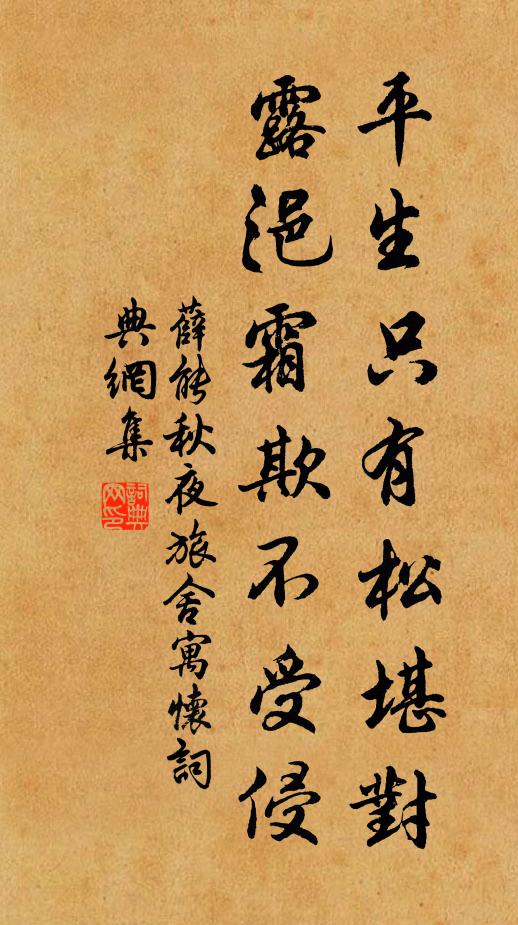 平生只有松堪對
露浥霜欺不受侵
薛能秋夜旅舍寓懷詞
典網集
詞典網印